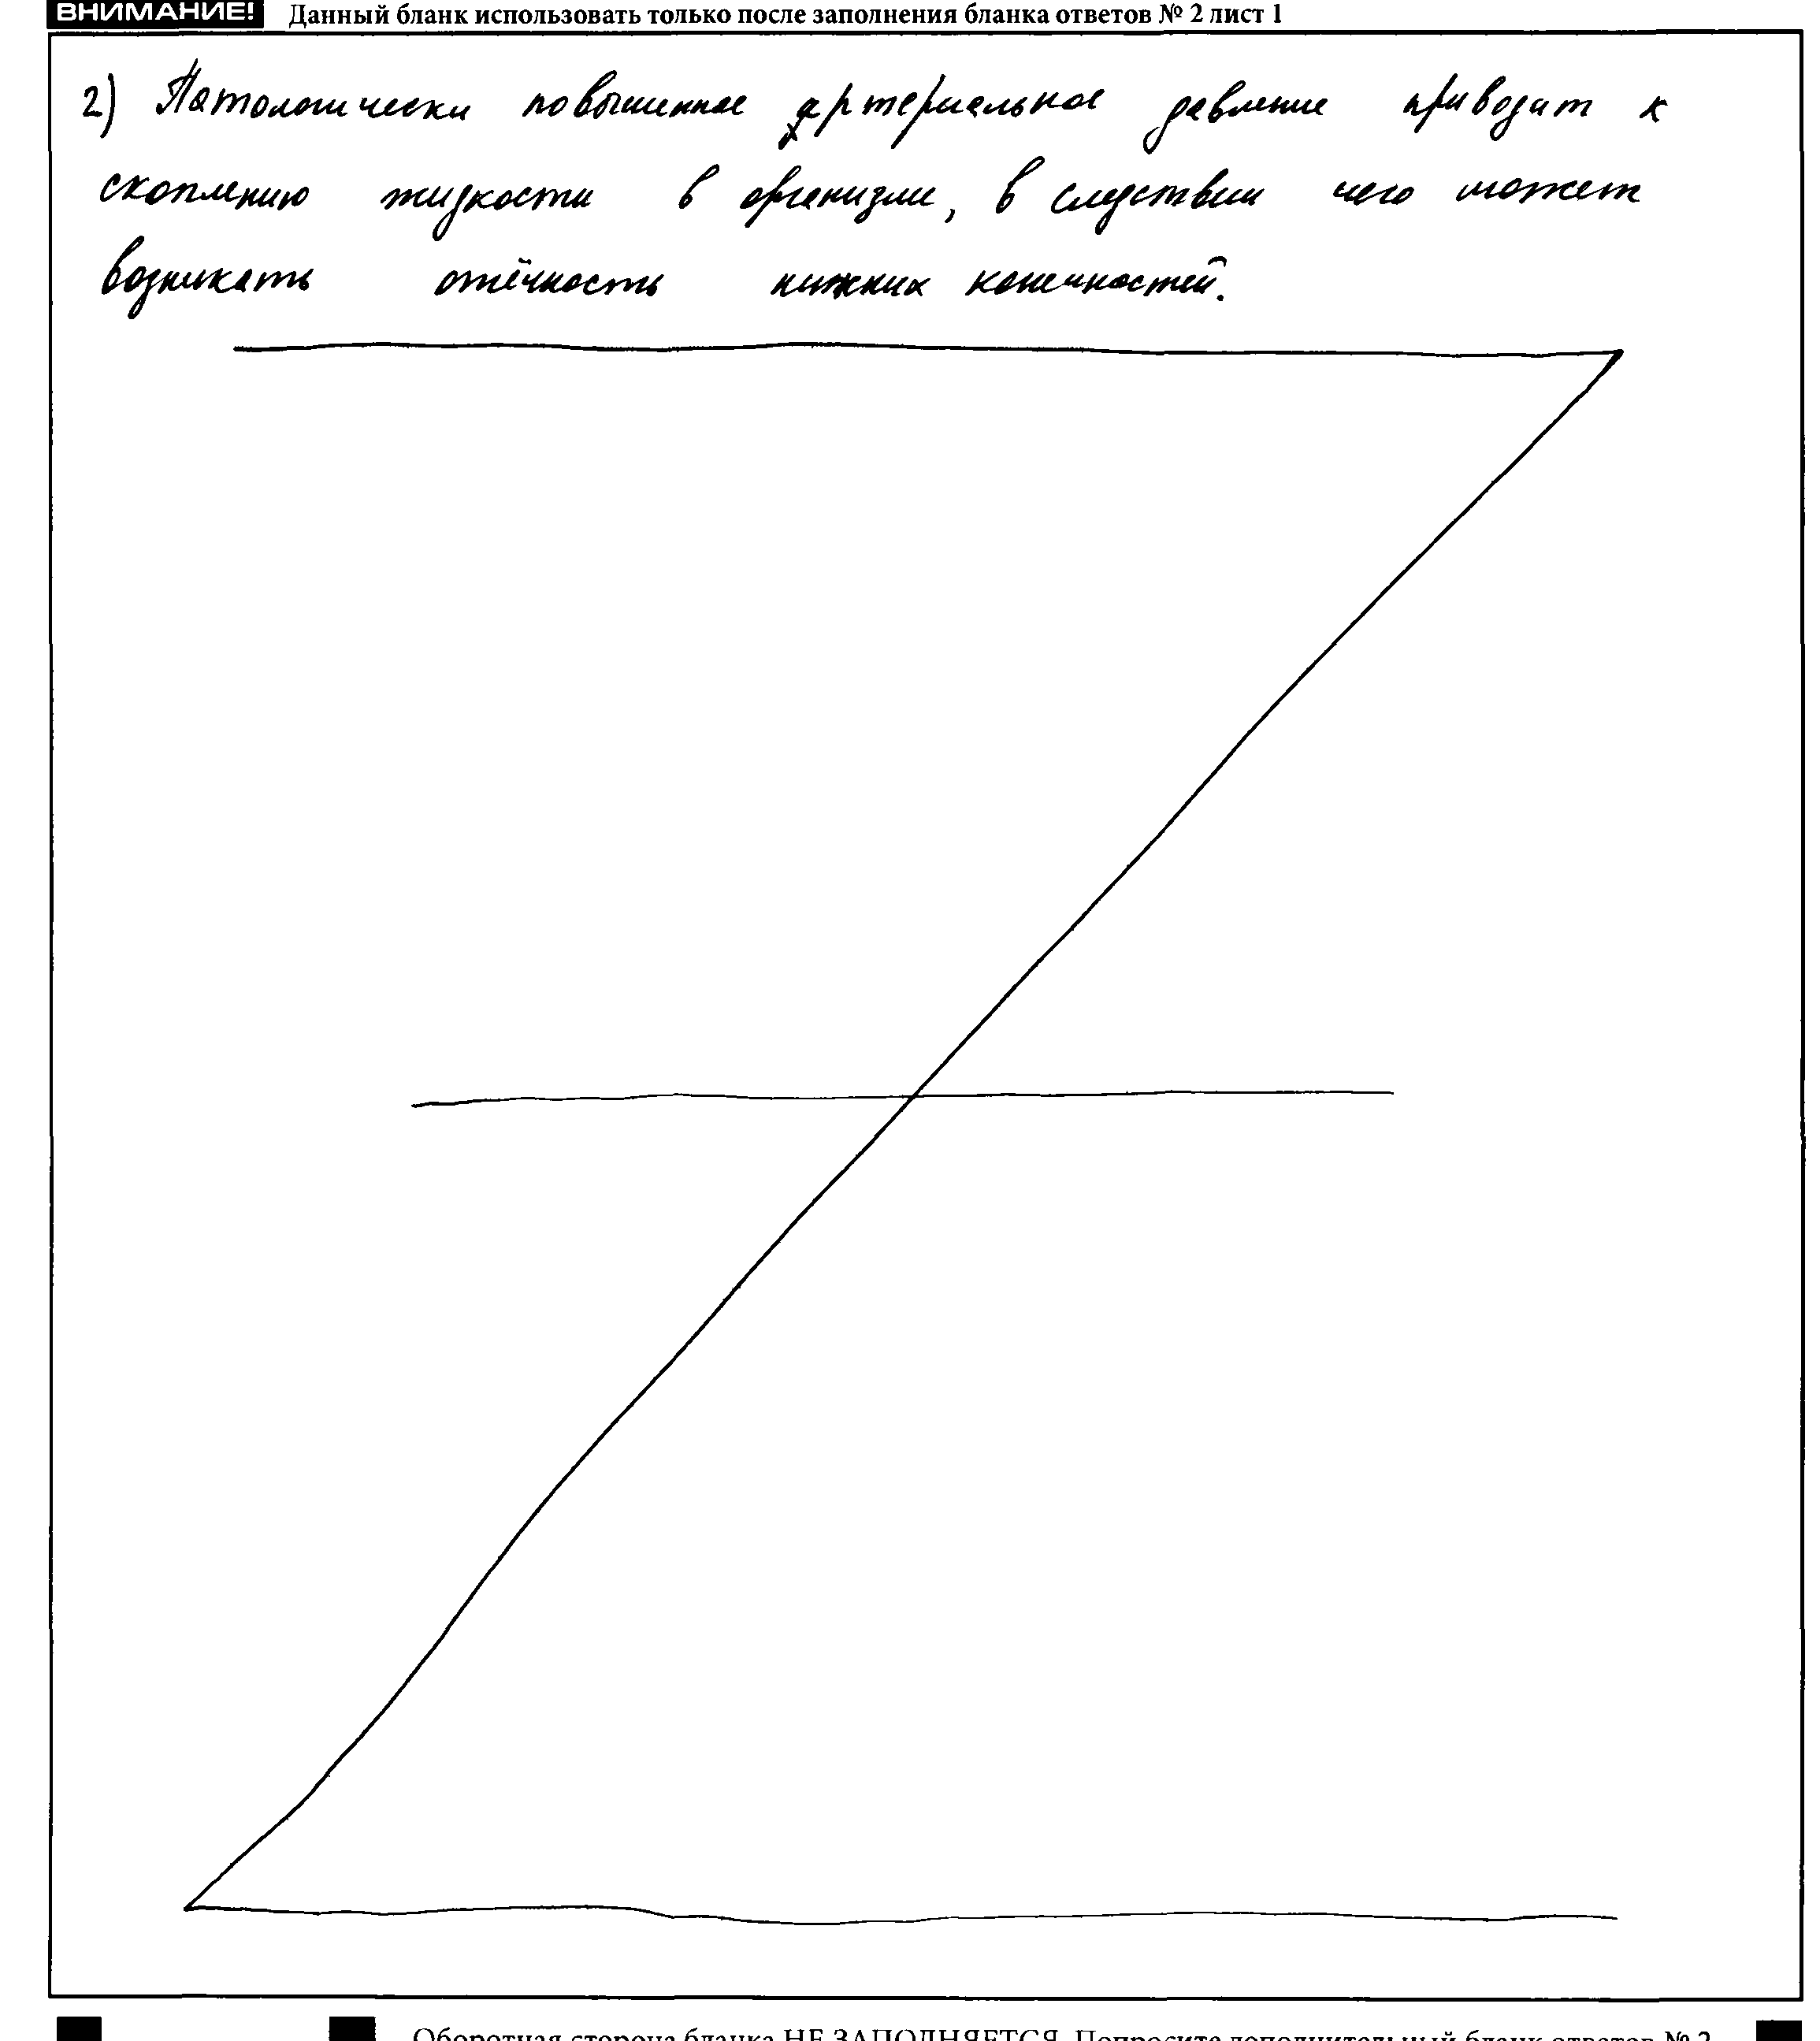 ВНИМАНИЕ! Данный бланк использовать только после заполнения бланка ответов № 2 лист 1
2) Патологически повышенное артериальное давление приводит к
скоплению жидкости в организме, в следствии чего может
возникать отёчность нижних конечностей.
Оборотная сторона бланка НЕ ЗАПОЛНЯЕТСЯ. Попросите дополнительный бланк ответов № 2